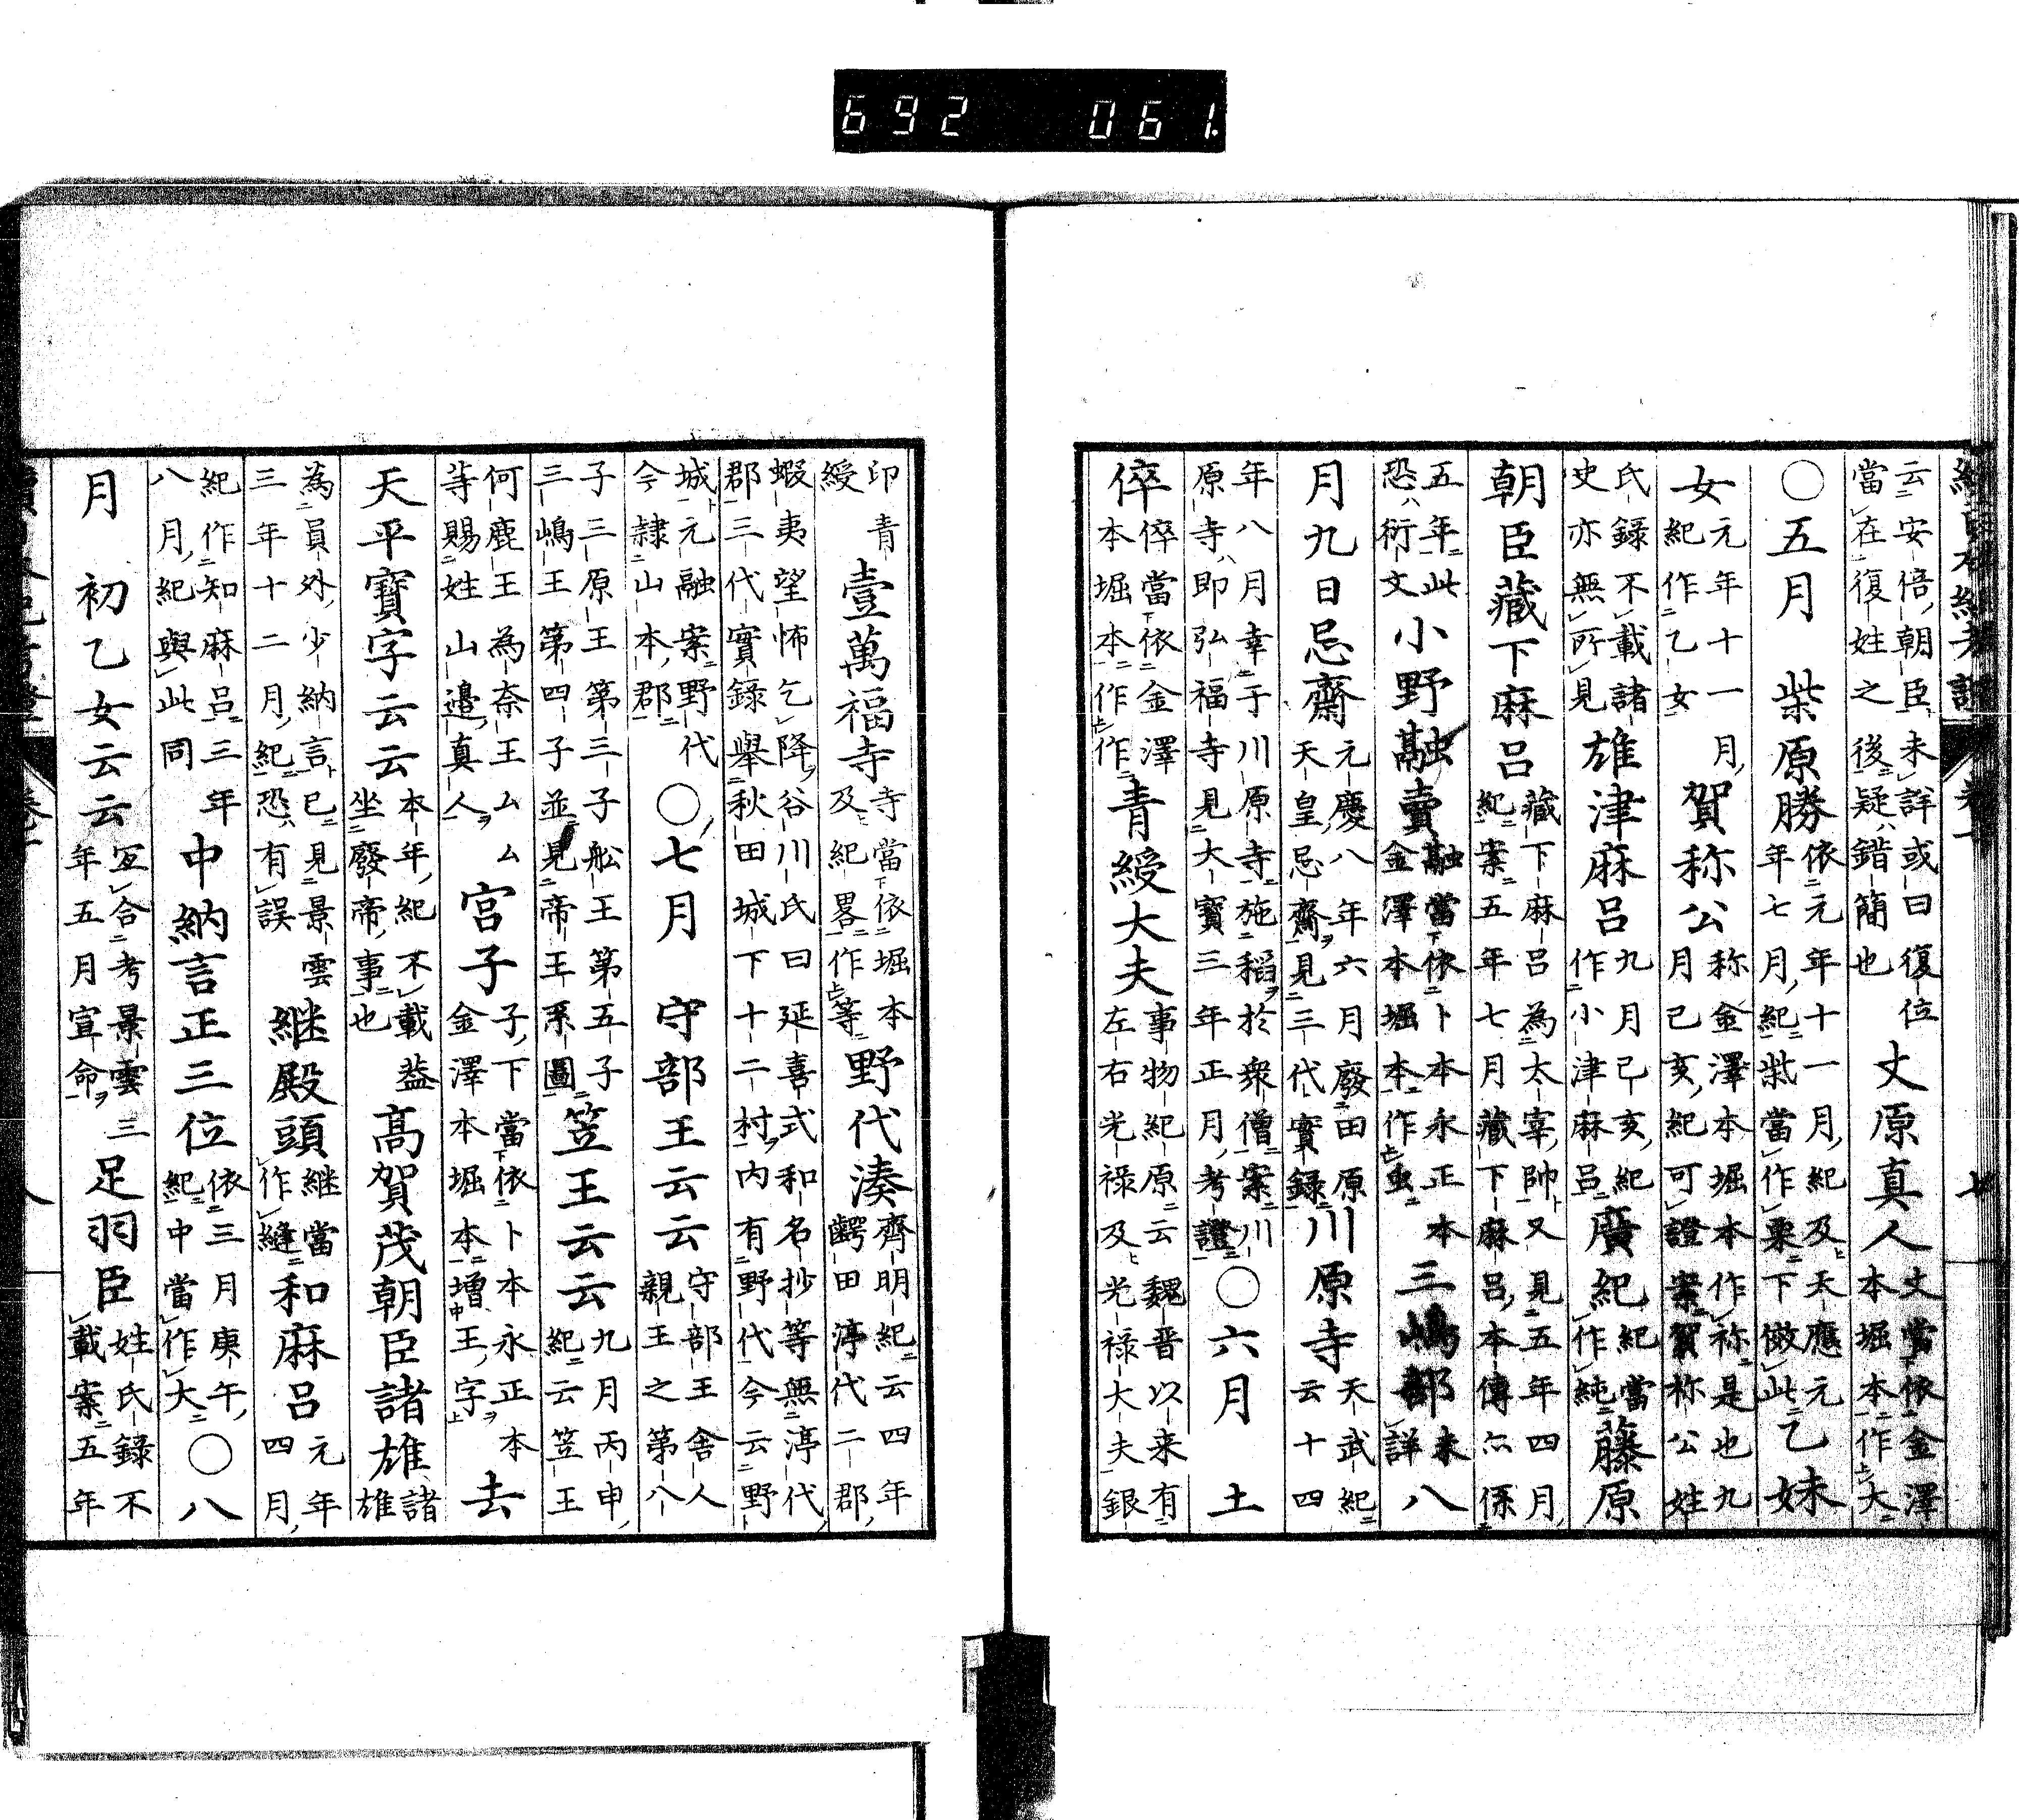 云安倍朝臣未詳或曰復位當在復姓之後疑錯簡也 丈原真人丈當依金澤本堀本作大
○五月 柴原勝依元年十一月紀及天應元年七月紀柴當作栗下倣此乙妹
女元年十一月紀作乙女 賀称公称金澤本堀本作祢是也九月己亥紀可證案賀祢公姓
氏録不載諸史亦無所見 雄津麻呂九月己亥紀作小津麻呂 廣紀紀當作純 藤原
朝臣藏下麻呂藏下麻呂為太宰帥又見五年四月紀案五年七月藏下麻呂本傳亦係
五年此恐衍文 小野融賣融當依卜本永正本金澤本堀本作虫 三嶋部未詳 八
月九日忌齋元慶八年六月廢田原天皇忌齋見三代實録 川原寺天武紀云十四
年八月幸于川原寺施稲於衆僧案川原寺即弘福寺見大寶三年正月考證 ○六月 土
倅倅當依金澤本堀本作作 青綬大夫事物紀原云魏晋以来有左右光禄及光禄大夫銀
印青綬 壹萬福寺寺當依堀本及紀畧作等 野代湊齊明紀云四年齶田渟代二郡
蝦夷望怖乞降谷川氏曰延喜式和名抄等無渟代郡三代實録舉秋田城下十二村内有野代今云野
城元融案野代今隷山本郡 ○七月 守部王云云守部王舎人親王之第八
子三原王第三子舩王第五子三嶋王第四子並見帝王系圖 笠王云云九月丙申紀云笠王
何鹿王為奈王ムム等賜姓山邊真人 宮子子下當依卜本永正本金澤本堀本増王字 去
天平寶字云云本年紀不載益坐廢帝事也 高賀茂朝臣諸雄諸雄
為員外少納言已見景雲三年十二月紀恐有誤 継殿頭継當作縫 和麻呂元年四月
紀作知麻呂三年八月紀與此同 中納言正三位依三月庚午紀中當作大 ○八
月 初乙女云云宜合考景雲三年五月宣命 足羽臣姓氏録不載案五年
692 061